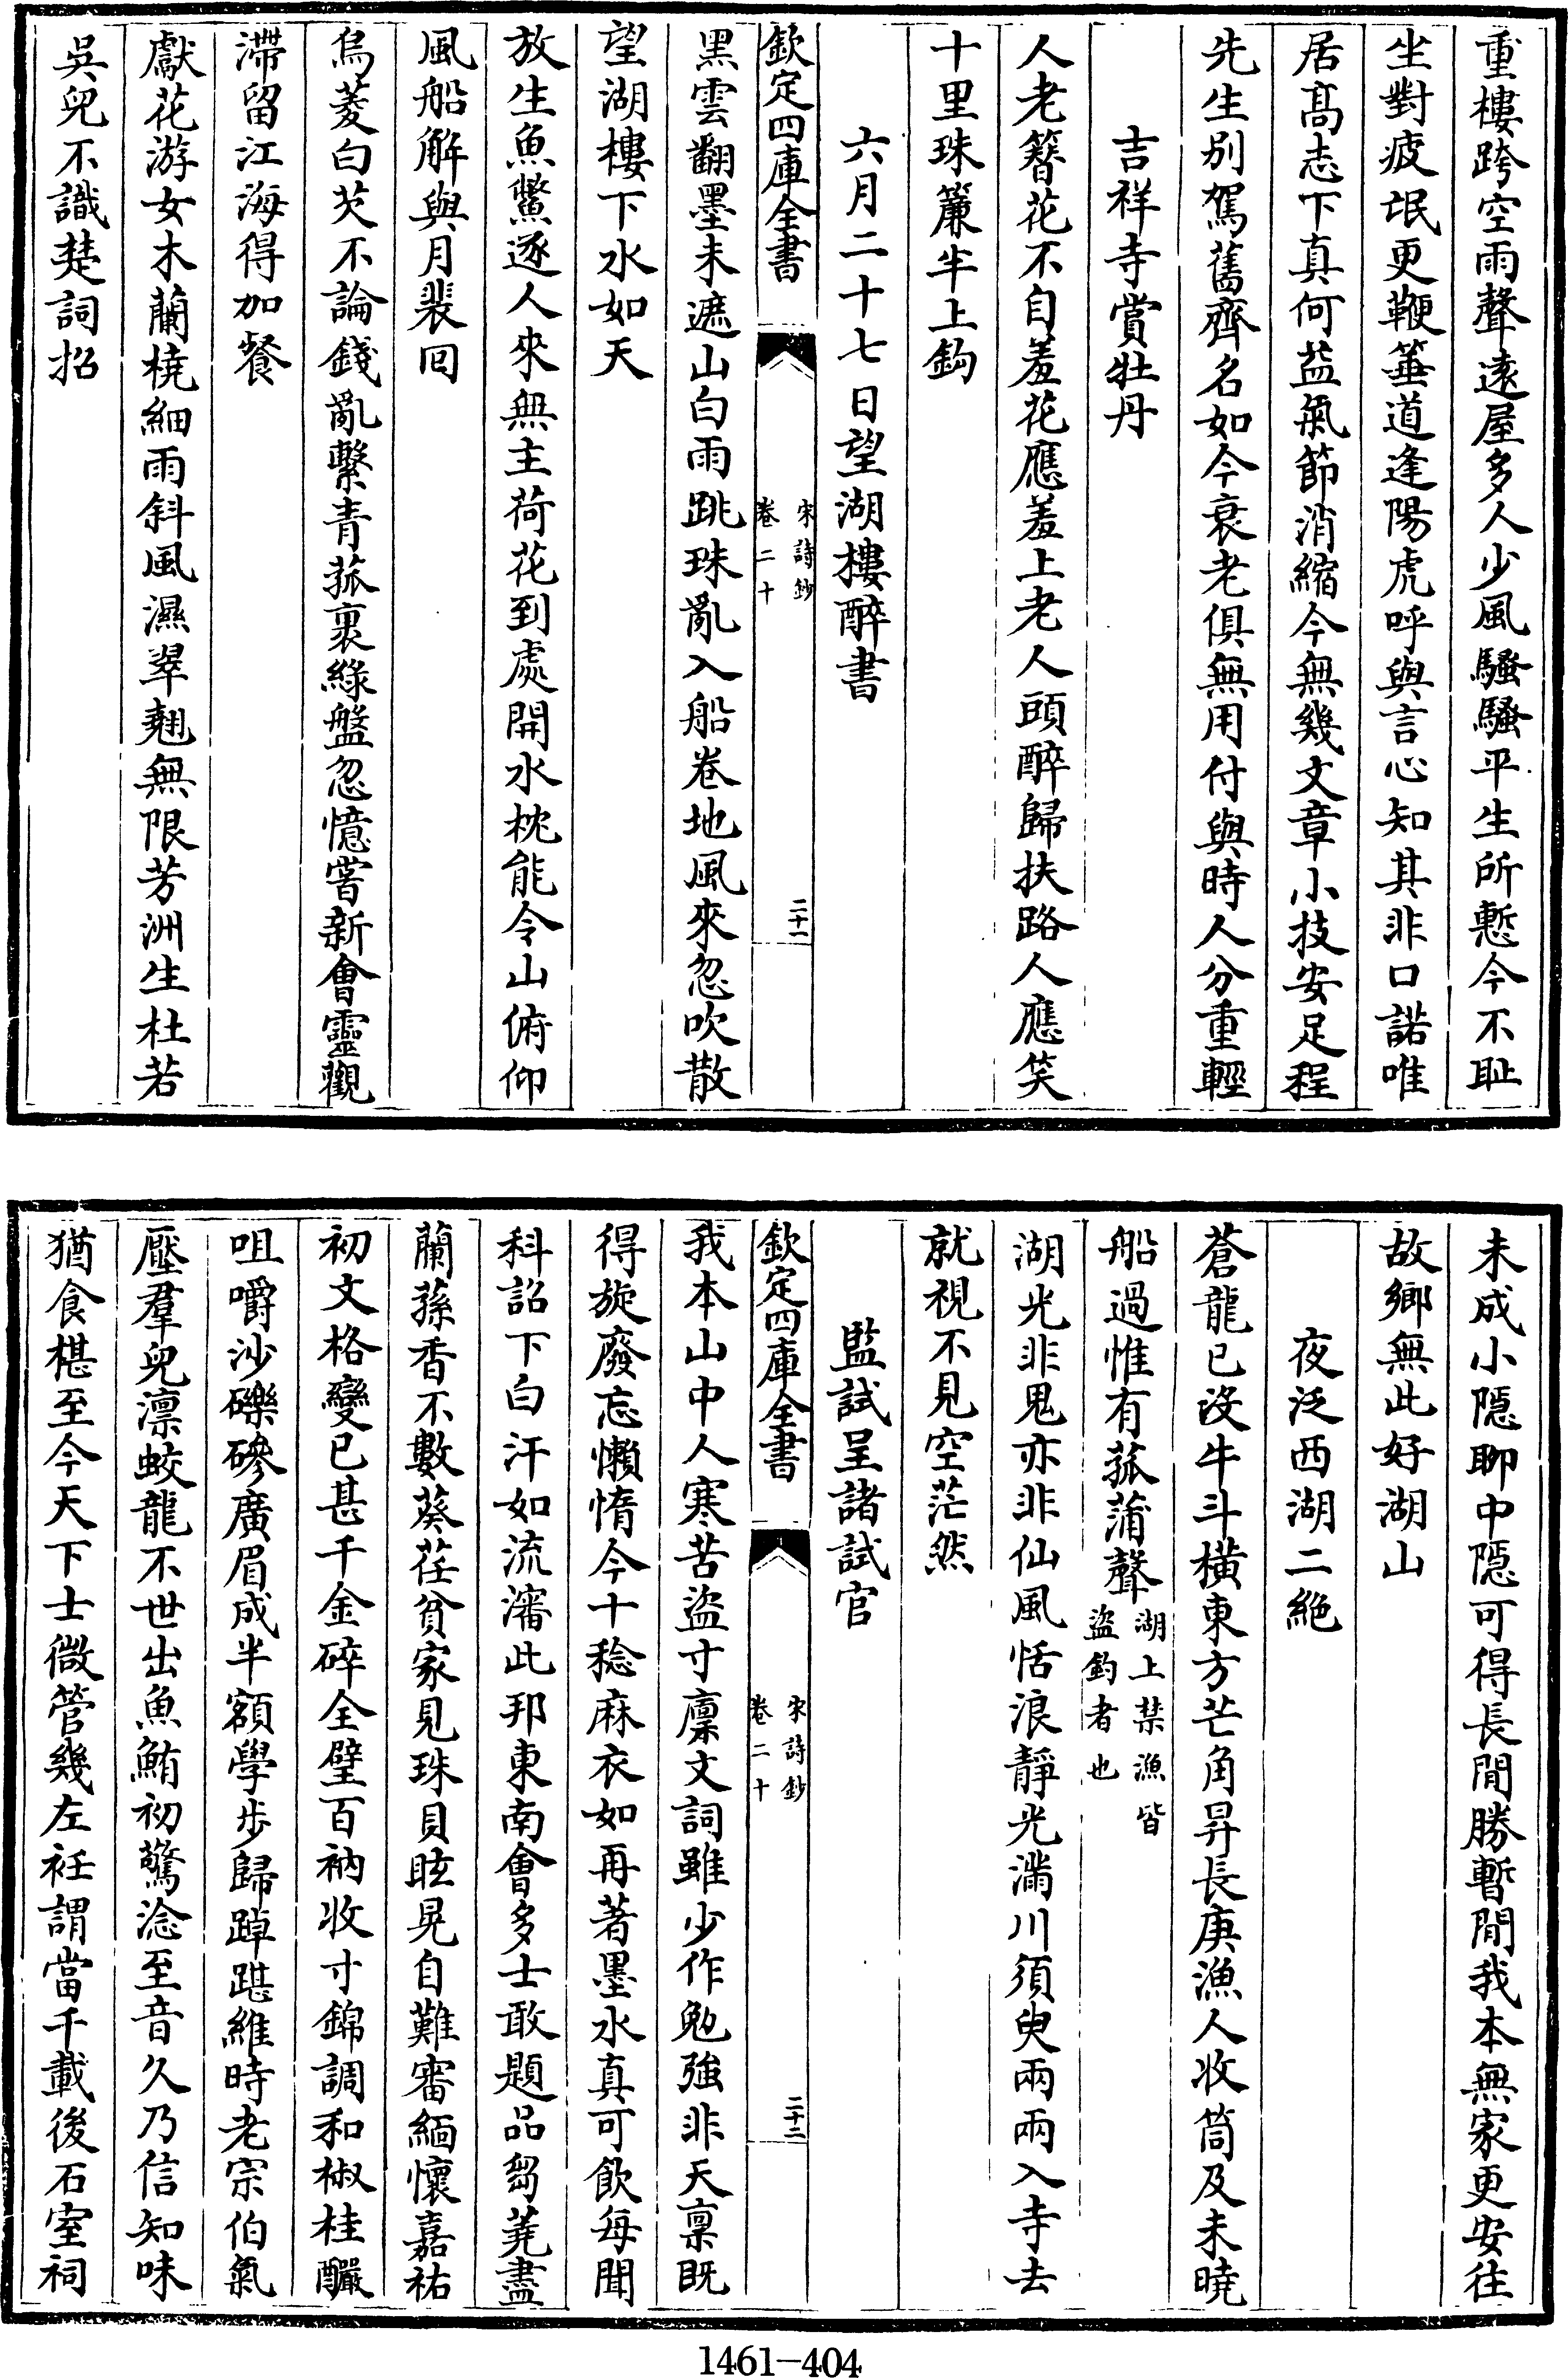 重樓跨空雨聲遠屋多人少風騷騷平生所慙今不耻
坐對疲氓更鞭箠道逢陽虎呼與言心知其非口諾唯
居髙志下真何益氣節消縮今無幾文章小技安足程
先生别駕舊齊名如今衰老俱無用付與時人分重輕
吉祥寺賞牡丹
人老簪花不自羞花應羞上老人頭醉歸扶路人應笑
十里珠簾半上鈎
六月二十七日望湖樓醉書
欽定四庫全書
宋詩鈔
卷二十
二十一
黑雲翻墨未遮山白雨跳珠亂入船卷地風來忽吹散
望湖樓下水如天
放生魚鱉逐人來無主荷花到處開水枕能令山俯仰
風船解與月裴回
烏菱白芡不論錢亂繫青菰裹綠盤忽憶嘗新會靈觀
滯留江海得加餐
獻花游女木蘭橈細雨斜風濕翠翹無限芳洲生杜若
吳兒不識楚詞招
未成小隱聊中隱可得長閒勝暫閒我本無家更安往
故鄉無此好湖山
夜泛西湖二絶
蒼龍已没牛斗橫東方芒角昇長庚漁人收筒及未曉
船過惟有菰蒲聲湖上禁漁皆盜釣者也
湖光非鬼亦非仙風恬浪靜光滿川須臾兩兩入寺去
就視不見空茫然
監試呈諸試官
欽定四庫全書
宋詩鈔
卷二十
二十二
我本山中人寒苦盜寸廩文詞雖少作勉強非天稟既
得旋廢忘懶惰今十稔麻衣如再著墨水真可飲每聞
科詔下白汗如流瀋此邦東南會多士敢題品芻蕘盡
蘭蓀香不數葵荏貧家見珠貝眩晃自難審緬懷嘉祐
初文格變已甚千金碎全璧百衲收寸錦調和椒桂釅
咀嚼沙礫磣廣眉成半額學步歸踔踸維時老宗伯氣
壓羣兒凛蛟龍不世出魚鮪初驚淰至音久乃信知味
猶食椹至今天下士微管幾左衽謂當千載後石室祠
1461-404